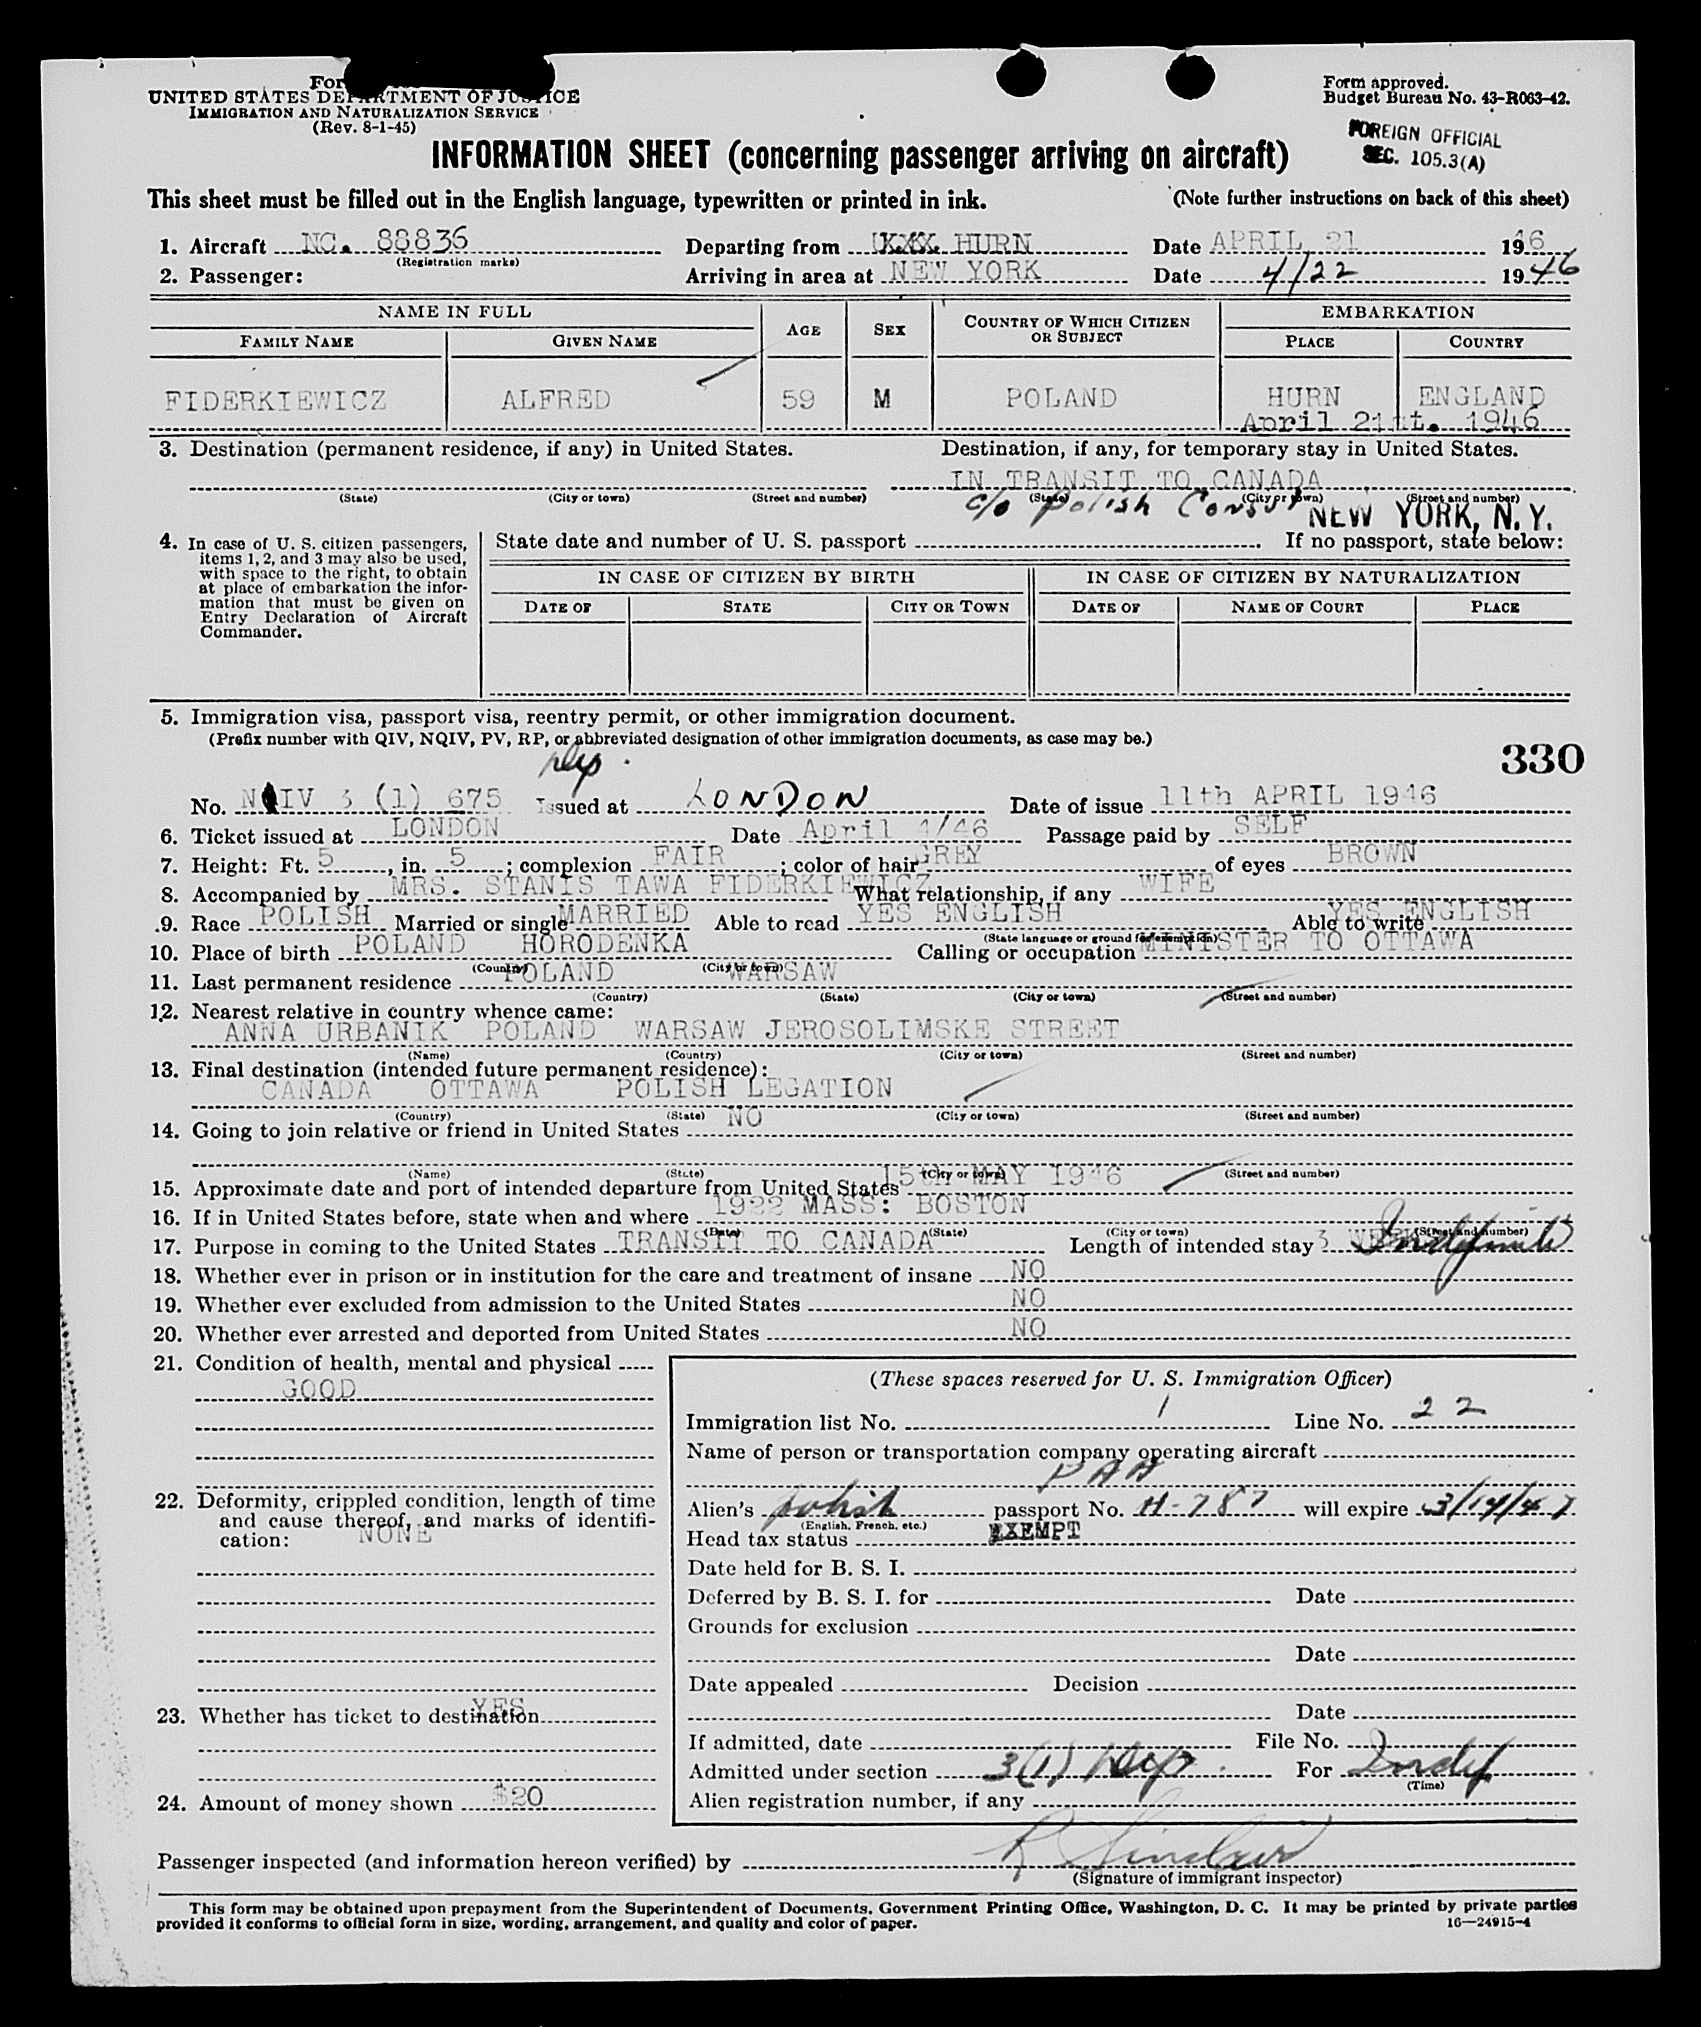 For
UNITED STATES DEPARTMENT OF JUSTICE
IMMIGRATION AND NATURALIZATION SERVICE
(Rev. 8-1-45)
Form approved.
Budget Bureau No. 43-R063-42.
FOREIGN OFFICIAL
SEC. 105.3(A)
INFORMATION SHEET (concerning passenger arriving on aircraft)
This sheet must be filled out in the English language, typewritten or printed in ink. (Note further instructions on back of this sheet)
1. Aircraft NC. 88836 Departing from HURN Date APRIL 21 1946
(Registration marks)
2. Passenger: Arriving in area at NEW YORK Date 4/22 1946
NAME IN FULL AGE SEX COUNTRY OF WHICH CITIZEN OR SUBJECT EMBARKATION
FAMILY NAME GIVEN NAME PLACE COUNTRY
FIDERKIEWICZ ALFRED 59 M POLAND HURN ENGLAND
April 21st. 1946
3. Destination (permanent residence, if any) in United States. Destination, if any, for temporary stay in United States.
IN TRANSIT TO CANADA
(State) (City or town) (Street and number) (State) (City or town) (Street and number)
c/o Polish Consul NEW YORK, N.Y.
4. In case of U. S. citizen passengers, items 1, 2, and 3 may also be used, with space to the right, to obtain at place of embarkation the information that must be given on Entry Declaration of Aircraft Commander.
State date and number of U. S. passport . If no passport, state below:
IN CASE OF CITIZEN BY BIRTH IN CASE OF CITIZEN BY NATURALIZATION
DATE OF STATE CITY OR TOWN DATE OF NAME OF COURT PLACE
5. Immigration visa, passport visa, reentry permit, or other immigration document.
(Prefix number with QIV, NQIV, PV, RP, or abbreviated designation of other immigration documents, as case may be.)
330
Dip.
No. NQIV 3 (1) 675 Issued at LONDON Date of issue 11th APRIL 1946
6. Ticket issued at LONDON Date April 4/46 Passage paid by SELF
7. Height: Ft. 5, in. 5; complexion FAIR; color of hair GREY of eyes BROWN
8. Accompanied by MRS. STANIS TAWA FIDERKIEWICZ What relationship, if any WIFE
9. Race POLISH Married or single MARRIED Able to read YES ENGLISH Able to write YES ENGLISH
(State language or ground for exemption)
10. Place of birth POLAND HORODENKA Calling or occupation MINISTER TO OTTAWA
(Country) (City or town)
11. Last permanent residence POLAND WARSAW
(Country) (State) (City or town) (Street and number)
12. Nearest relative in country whence came:
ANNA URBANIK POLAND WARSAW JEROSOLIMSKE STREET
(Name) (Country) (City or town) (Street and number)
13. Final destination (intended future permanent residence):
CANADA OTTAWA POLISH LEGATION
(Country) (State) (City or town) (Street and number)
14. Going to join relative or friend in United States NO
(Name) (State) (City or town) (Street and number)
15. Approximate date and port of intended departure from United States 15th MAY 1946
16. If in United States before, state when and where 1922 MASS: BOSTON
(Date) (State) (City or town) (Street and number)
17. Purpose in coming to the United States TRANSIT TO CANADA Length of intended stay 3 WEEKS Indefinite
18. Whether ever in prison or in institution for the care and treatment of insane NO
19. Whether ever excluded from admission to the United States NO
20. Whether ever arrested and deported from United States NO
21. Condition of health, mental and physical
GOOD
22. Deformity, crippled condition, length of time and cause thereof, and marks of identification: NONE
23. Whether has ticket to destination YES
24. Amount of money shown $20
(These spaces reserved for U. S. Immigration Officer)
Immigration list No. 1 Line No. 22
Name of person or transportation company operating aircraft
PAA
Alien's Polish passport No. H-787 will expire 3/14/47
(English, French, etc.)
Head tax status EXEMPT
Date held for B. S. I.
Deferred by B. S. I. for Date
Grounds for exclusion
Date
Date appealed Decision
Date
If admitted, date File No.
Admitted under section 3(1) Dip. For Indef
(Time)
Alien registration number, if any
Passenger inspected (and information hereon verified) by R Sinclair
(Signature of immigrant inspector)
This form may be obtained upon prepayment from the Superintendent of Documents, Government Printing Office, Washington, D. C. It may be printed by private parties
provided it conforms to official form in size, wording, arrangement, and quality and color of paper. 16—24915-4